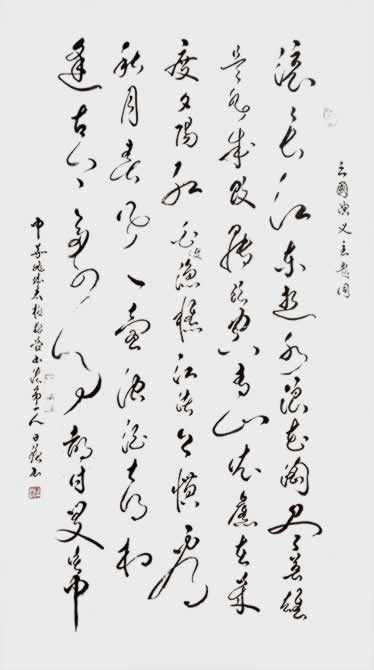 三國演义主题词
滚滚长江东逝水浪花淘尽英雄
是非成败转头空青山依旧在几
度夕阳红白发渔樵江渚上惯看
秋月春风一壶浊酒喜相
逢古今多少事都付笑谈中
书法第一人